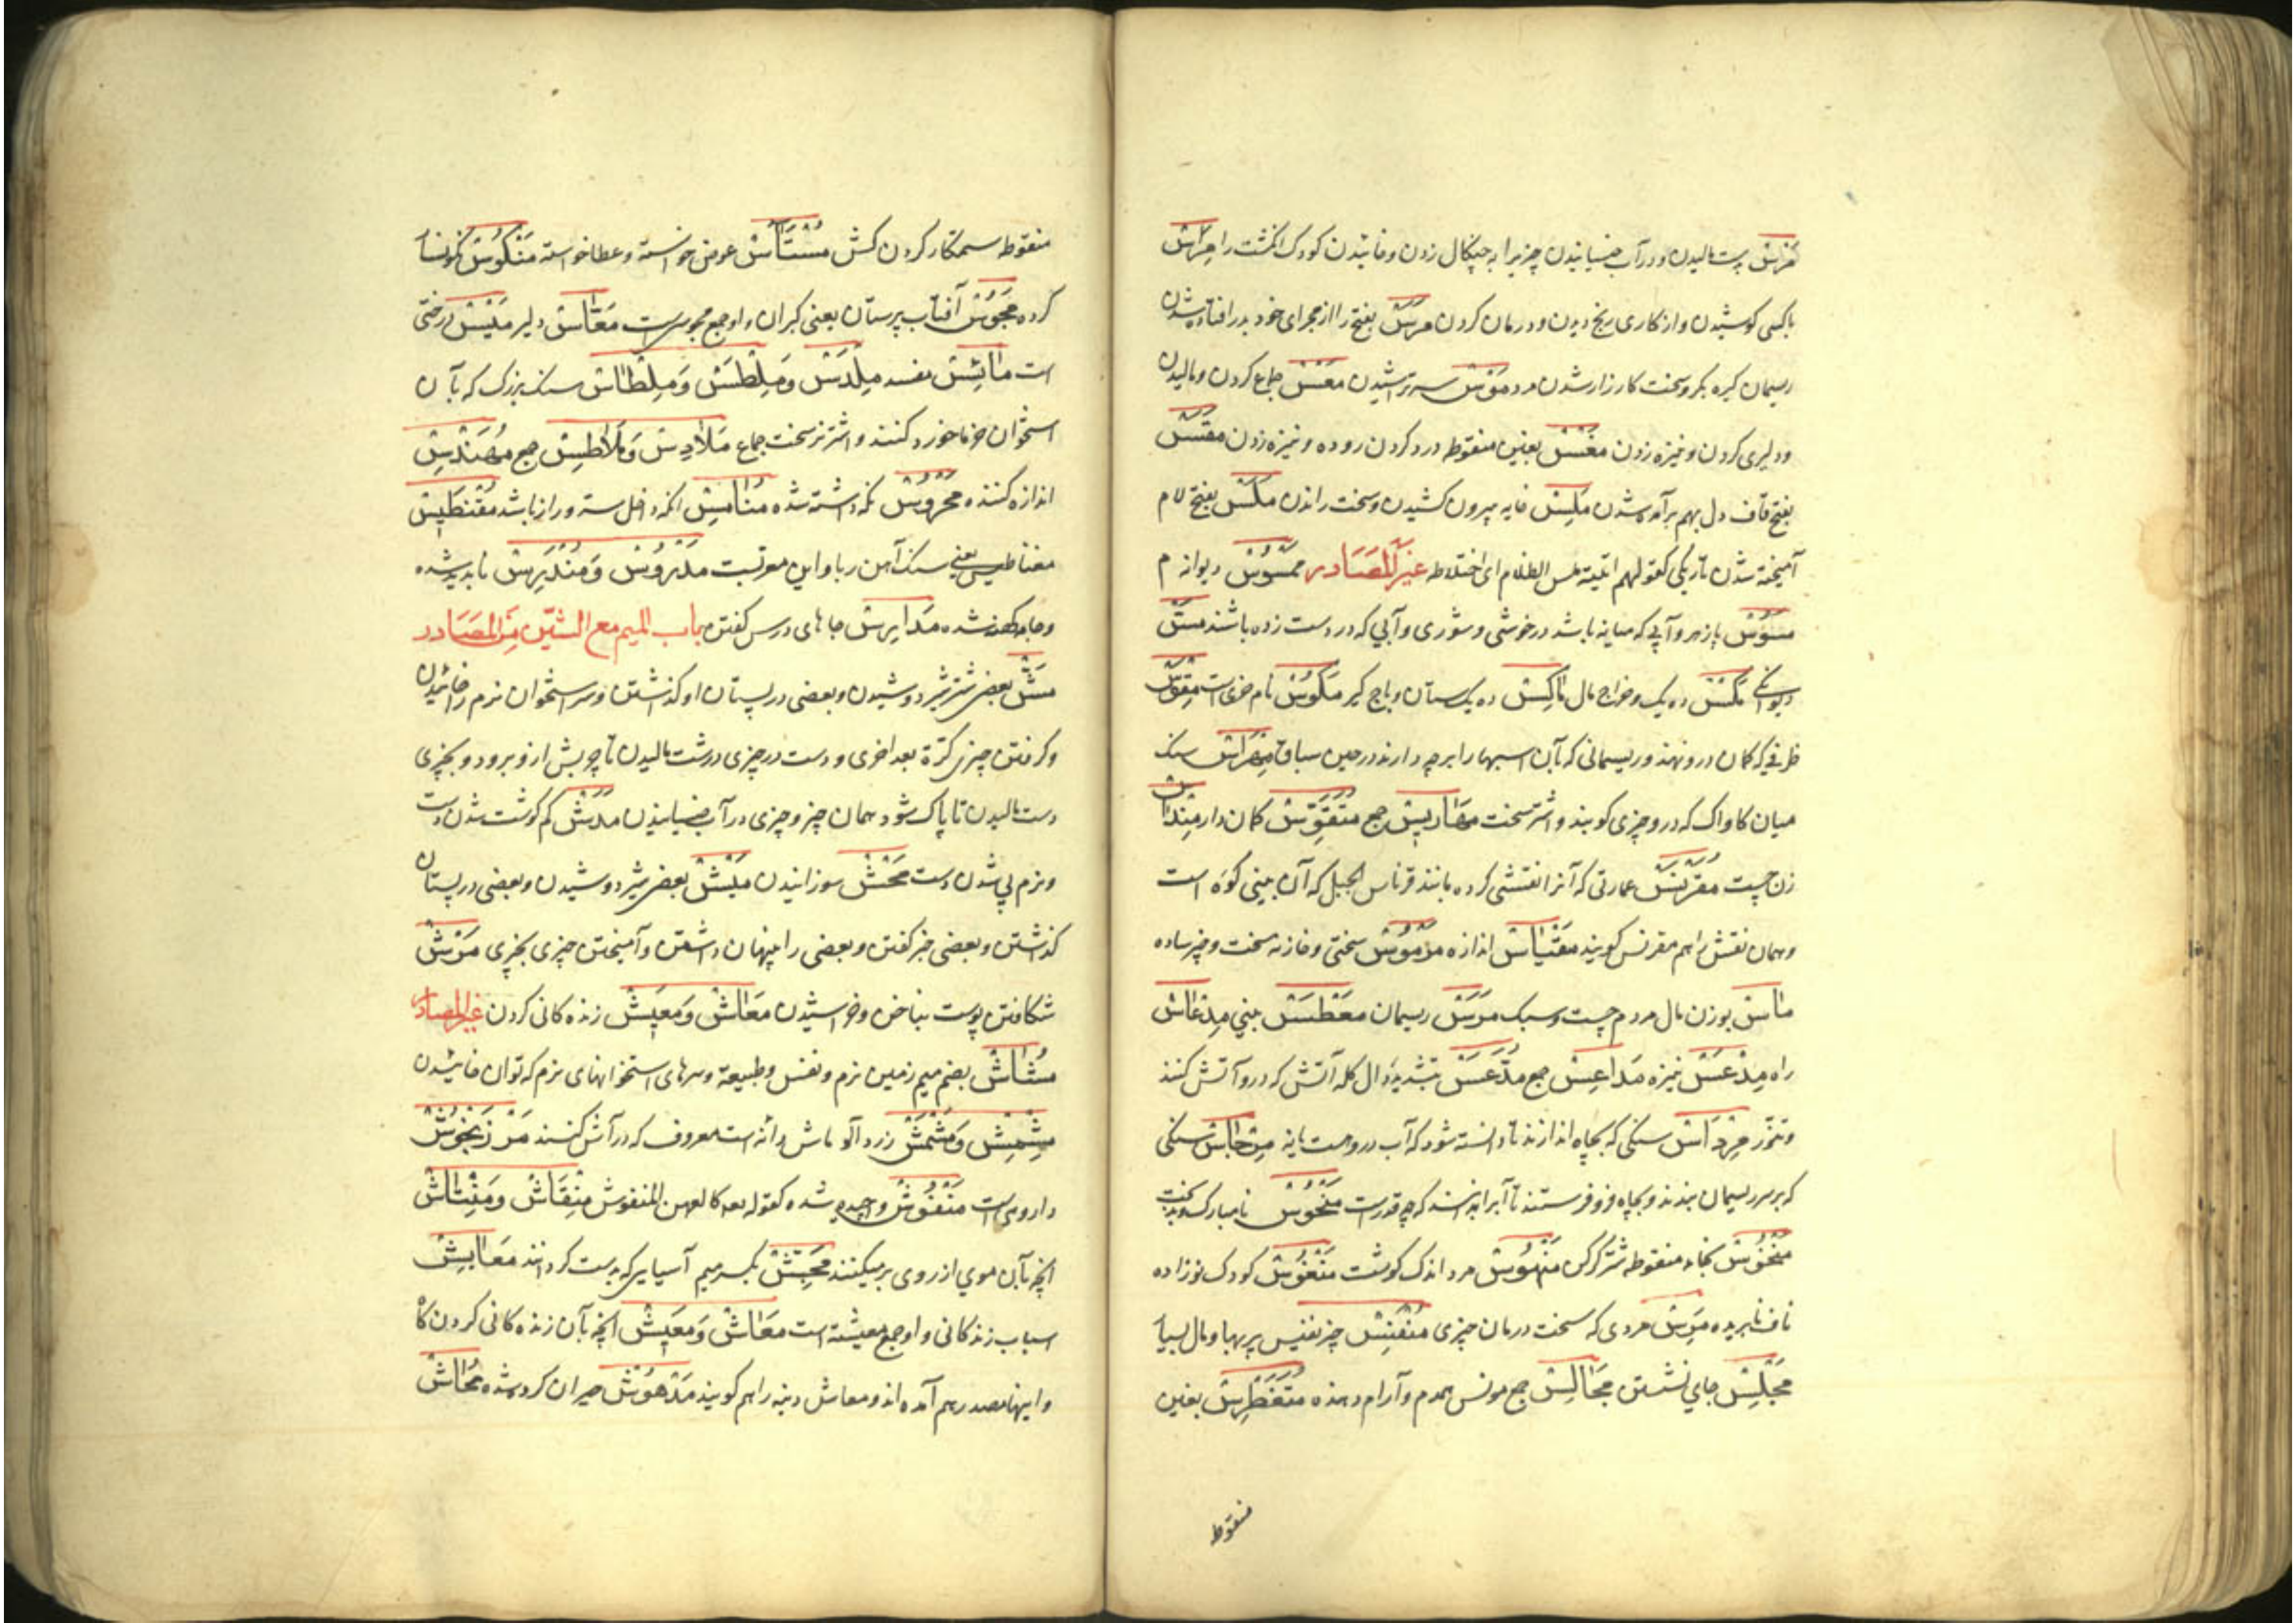 مَرْسْ پست مالیدن و در آب خیسانیدن چیزیرا به چنکال زدن و خائیدن کودک انکشت را مِراسْ
با کسی کوشیدن و از کاری رنج دیدن و درمان کردن مَرَسْ بفتح را از مجرای خود بدر افتاده شدن
ریسمان کیره بکر و سخت کارزار شدن مرد مَوْسْ سر تراشیدن مَعْسْ جماع کردن و مالیدن
و دلیری کردن و نیزه زدن مَغْسْ بغین منقوطه درد کردن روده و نیزه زدن مَقَسْ
بفتح قاف دل بهم برآمده شدن مَلْسْ خایه بیرون کشیدن و سخت راندن مَلَسْ بفتح لام
آمیخته شدن تاریکی کقولهم اتیته ملس الظلام ای اختلاطه غیر المَصَادر مَمْسُوْسْ دیوانه م
مَسُوْسْ پازهر و آبی که میانه باشد در خوشی و شوری و آبی که در دست زده باشند مَسّْ
دیوانکی مَکْسْ ده یک و خراج مال مٰاکِسْ ده یک ستان و باج کیر مَکُوْسْ نام خری است مِقْوَسْ
ظرفی که کمان درو نهند و ریسمانی که بآن اسبها را برجه دارند در حین سباق مِهْرَاسْ سنک
میان کاواک که درو چیزی کوبند و اشتر سخت مَهَاریْسْ جمع مُتَقَوِّسْ کمان دار
زن چست مُقَرْنَسْ عمارتی که آنرا نقشی کرده مانند قرناس الجبل که آن بینی کوه است
و همان نقش را هم مقرنس کویند مِقْیٰاسْ اندازه مَرْمُوْسْ سختی و خازنه سخت و خبر ساده
مٰاسْ بوزن مال مردم چست و سبک مَرَسْ ریسمان مَعْطَسْ بینی مِدْعٰاسْ
راه مِدْعَسْ نیزه مَدَاعِسْ جمع مُدَّعَسْ بتشدید دال کله آتش که درو آتش کنند
و تنور مِرْدَاسْ سنکی که بچاه اندازند تا دانسته شود که آب دروست یا نه مِرْجٰاسْ سنکی
که بر سر ریسمان بندند و بچاه فرو فرستند تا آبرا بدانند که چه قدر است مَنْحُوْسْ نامبارک و بدبخت
مَنْخُوْسْ بخاء منقوطه شتر کرکن مَنْهُوْسْ مرد اندک کوشت مَنْفُوْسْ کودک نوزاده
ناف نابریده مَرِسْ مردی که سخت درمان چیزی مُنْفِسْ چیز نفیس پر بها و مال بسیار
مَجْلِسْ جای نشستن مَجٰالِسْ جمع مونس همدم و آرام دهنده مُتَغَطْرِسْ بغین
منقوطه
منقوطه ستمکار کردن کش مُسْتَآسْ عوض خواسته و عطا خواسته مَنْکُوْسْ نکونسار
کرده مَجُوْسْ آفتاب پرستان یعنی کبران و او جمع مجوسی است مَعّٰاسْ دلیر مَیْسْ درختی
است مٰائِسْ مفسد مِلْدَسْ وَمِلْطَسْ وَمِلْطٰاسْ سنک بزرک که بآن
استخوان خرما خورد کنند و اشتر نر سخت جماع مَلاٰدِسْ وَمَلاٰطِسْ جمع مُهَنْدِسْ
اندازه کننده مَحْرُوْسْ نکه داشته شده مُنٰامِسْ انکه داخل ستر و راز باشد مِقْنَطِیْسْ
مغناطیس یعنی سنک آهن ربا و این معربست مَدْرُوْسْ وَمُنْدَرِسْ ناپدید شده
و جامه کهنه شده مَدَارِسْ جاهای درس کفتن باب المیم مع الشّین مِنَ المَصَادر
مَشّْ بعض شیر شتر دوشیدن و بعضی در پستان او کذاشتن و سر استخوان نرم را خائیدن
و کرفتن چیزی کرّة بعد اخری و دست در چیزی درشت مالیدن تا چربش ازو برود و بچیزی
دست مالیدن تا پاک شود همان چیز و چیزی در آب خیسانیدن مَدَشْ کم کوشت شدن دست
و نرم پی شدن دست مَحْشْ سوزانیدن مَیْشْ بعض شیر دوشیدن و بعضی در پستان
کذاشتن و بعضی خبر کفتن و بعضی را پنهان داشتن و آمیختن چیزی بچیزی مَرْشْ
شکافتن پوست بناخن و خراشیدن مَعٰاشْ وَمَعِیْشْ زنده کانی کردن غیر المصادر
مُشٰاشْ بضم میم زمین نرم و نفس و طبیعة و سرهای استخوانهای نرم که توان خائیدن
مِشْمِشْ وَمَشْمَشْ زرد آلو ماش دانه است معروف که در آش کنند مَرْزَنْجُوْشْ
داروئی است مَنْفُوْشْ واچیده شده کقوله تعه کالعهن المنفوش مِنْقَاشْ وَمِنْتٰاشْ
انچه بآن موی از روی برمیکنند مِجَشّْ بکسر میم آسیایی که بدست کردانند مَعَایِشْ
اسباب زندکانی و او جمع معیشة است مَعَاشْ وَمَعِیْشْ انچه بآن زنده کانی کردن کا
و اینها مصدر هم آمده اند و معاش دنیه را هم کویند مَدْهُوْشْ حیران کرده شده مُحٰاشْ